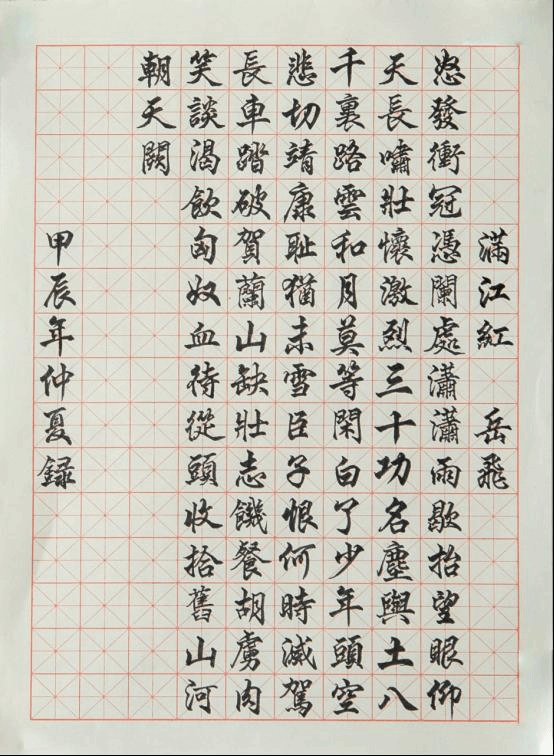 滿江紅 岳飛
怒發衝冠憑闌處瀟瀟雨歇抬望眼仰
天長嘯壯懷激烈三十功名塵與土八
千裏路雲和月莫等閑白了少年頭空
悲切靖康耻猶未雪臣子恨何時滅駕
長車踏破賀蘭山缺壯志饑餐胡虜肉
笑談渴飲匈奴血待從頭收拾舊山河
朝天闕
甲辰年仲夏録